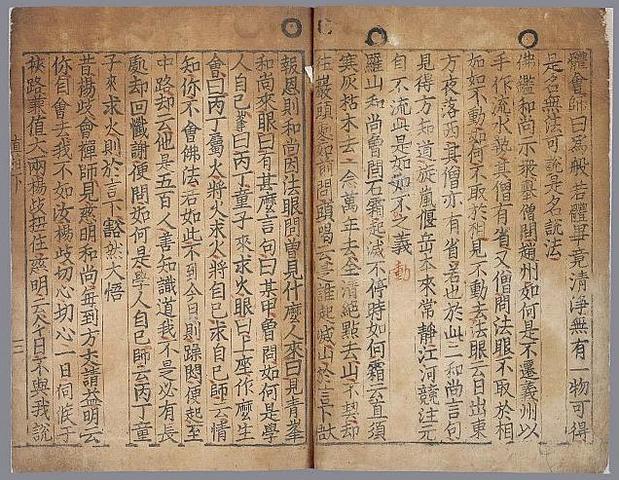 體會師曰爲般若體畢竟清淨無有一物可得
是名無法可說是名說法
佛鑑和尚示衆擧僧問趙州如何是不還義州以
手作流水勢其僧有省又僧問法眼不取於相
如如不動如何不取於相見不動去法眼云日出東
方夜落西其僧亦有省若也於此二和尚言句
見得方知道旋嵐偃岳本來常靜江河競注元
自不流此是如如不義
動
羅山和尚曾問石霜起滅不停時如何霜云直須
寒灰枯木去一念萬年去全清絶點去山不契却
往巖頭處如前問頭喝云是誰起滅山於言下
報恩則和尚因法眼問曾見什麽人來曰見青峯
和尚來眼曰有甚麽言句曰某甲曾問如何是學
人自己峯曰丙丁童子來求火眼曰上座作麽生
會曰丙丁屬火將火求火將自己求自己師云情
知你不會佛法若如此不到今日則躁悶便起至
中路却云他是五百人善知識道我不是必有長
處却回懺謝便問如何是學人自己師云丙丁童
子來求火則於言下豁然大悟
昔楊歧會禪師見慈明和尚每到方丈請益明云
你自會去我不如汝楊歧切心切心一日伺候于
狹路兼值大雨楊歧扭住慈明云今日不與我說